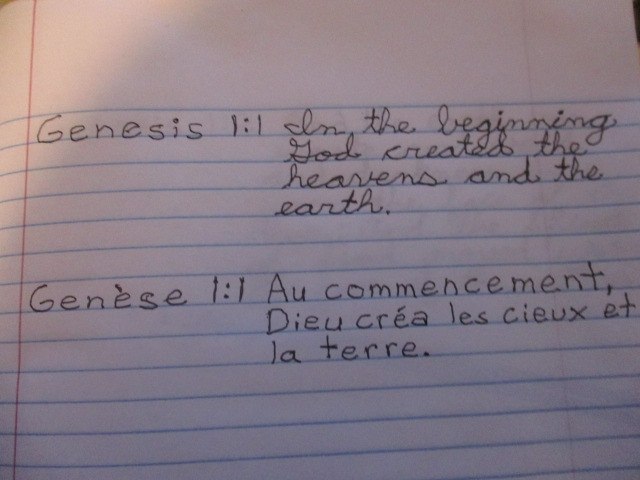 Genesis 1:1 In the beginning
God created the
heavens and the
earth.
Genèse 1:1 Au commencement,
Dieu créa les cieux et
la terre.